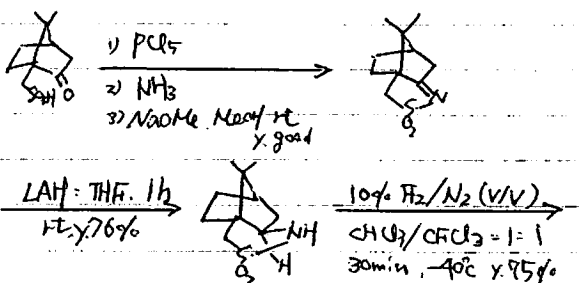 1) PCl5
2) NH3
3) NaOMe. MeOH rt
y. good
SO3H O
S O2 N
LAH = THF. 1h
rt. y. 76%
NH
S O2 H
10% F2/N2 (v/v)
CHCl3/CFCl3 = 1 = 1
30min, -40℃ y. 75%